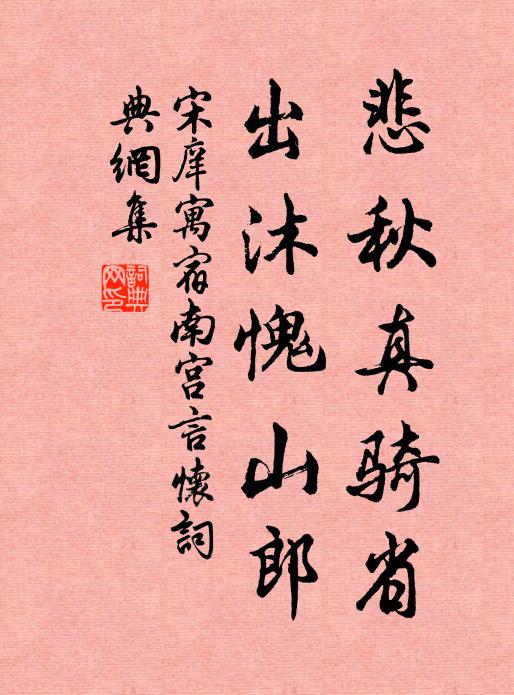 悲秋真骑省
出沐愧山郎
宋庠寓宿南宫言懷詞
典網集
詞典網印